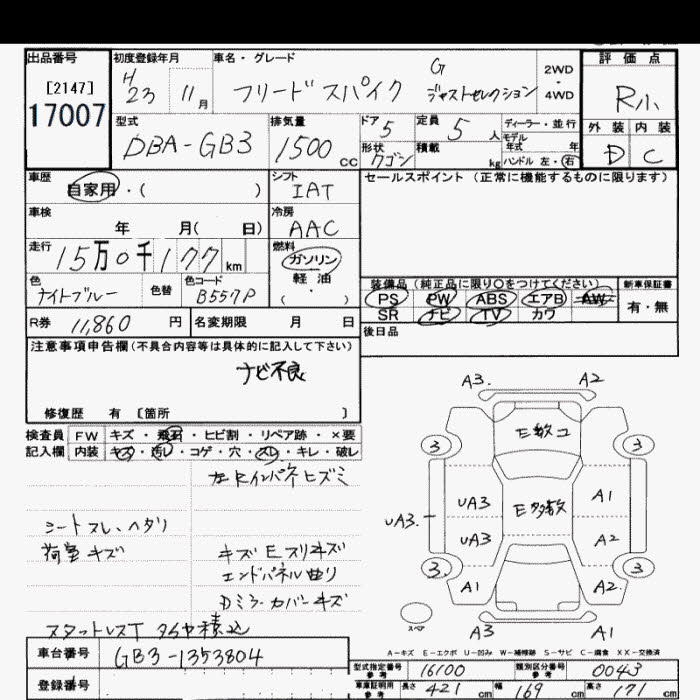 出品番号
[2147]
17007
初度登録年月
H23 11月
車名・グレード
フリード スパイク G ジャストセレクション
2WD・4WD
評価点
R小
外装 内装
D C
型式
DBA-GB3
排気量
1500cc
ドア 5
形状 ワゴン
定員 5人
積載 kg
ディーラー・並行
モデル年式 年
ハンドル 左・右
車歴
自家用・( )
シフト
IAT
セールスポイント(正常に機能するものに限ります)
車検
年 月( 日)
冷房
AAC
走行
15万0千177km
燃料
ガソリン
軽油
(・)
色
ナイトブルー
色替
色コード
B557P
装備品(純正品に限り○をつけてください)
PS PW ABS エアB AW
SR ナビ TV カワ
新車保証書
有・無
R券 11,860円
名変期限 月 日
後日品
注意事項申告欄(不具合内容等は具体的に記入して下さい)
ナビ不良
修復歴 有 [箇所 ]
検査員記入欄
FW キズ・飛石・ヒビ割・リペア跡・×要
内装 キズ・汚レ・コゲ・穴・スレ・キレ・破レ
左Rインパネヒズミ
シートスレ、ヘタリ
荷室キズ
キズEスリキズ
エンドパネル曲り
Dミラーカバーキズ
スタットレスT タイヤ積込
A3. A2
3 E数コ 3
UA3. UA3 E多数 A1
UA3 A2
3 A1 A2 3
スペア
A3 A1
A-キズ E-エクボ U-凹み W-補修跡 S-サビ C-腐食 XX-交換済
車台番号 GB3-1353804
登録番号
型式指定番号 参考 16100
類別区分番号 参考 0043
車庫証明用 参考 長さ 421cm 幅 169cm 高さ 171cm